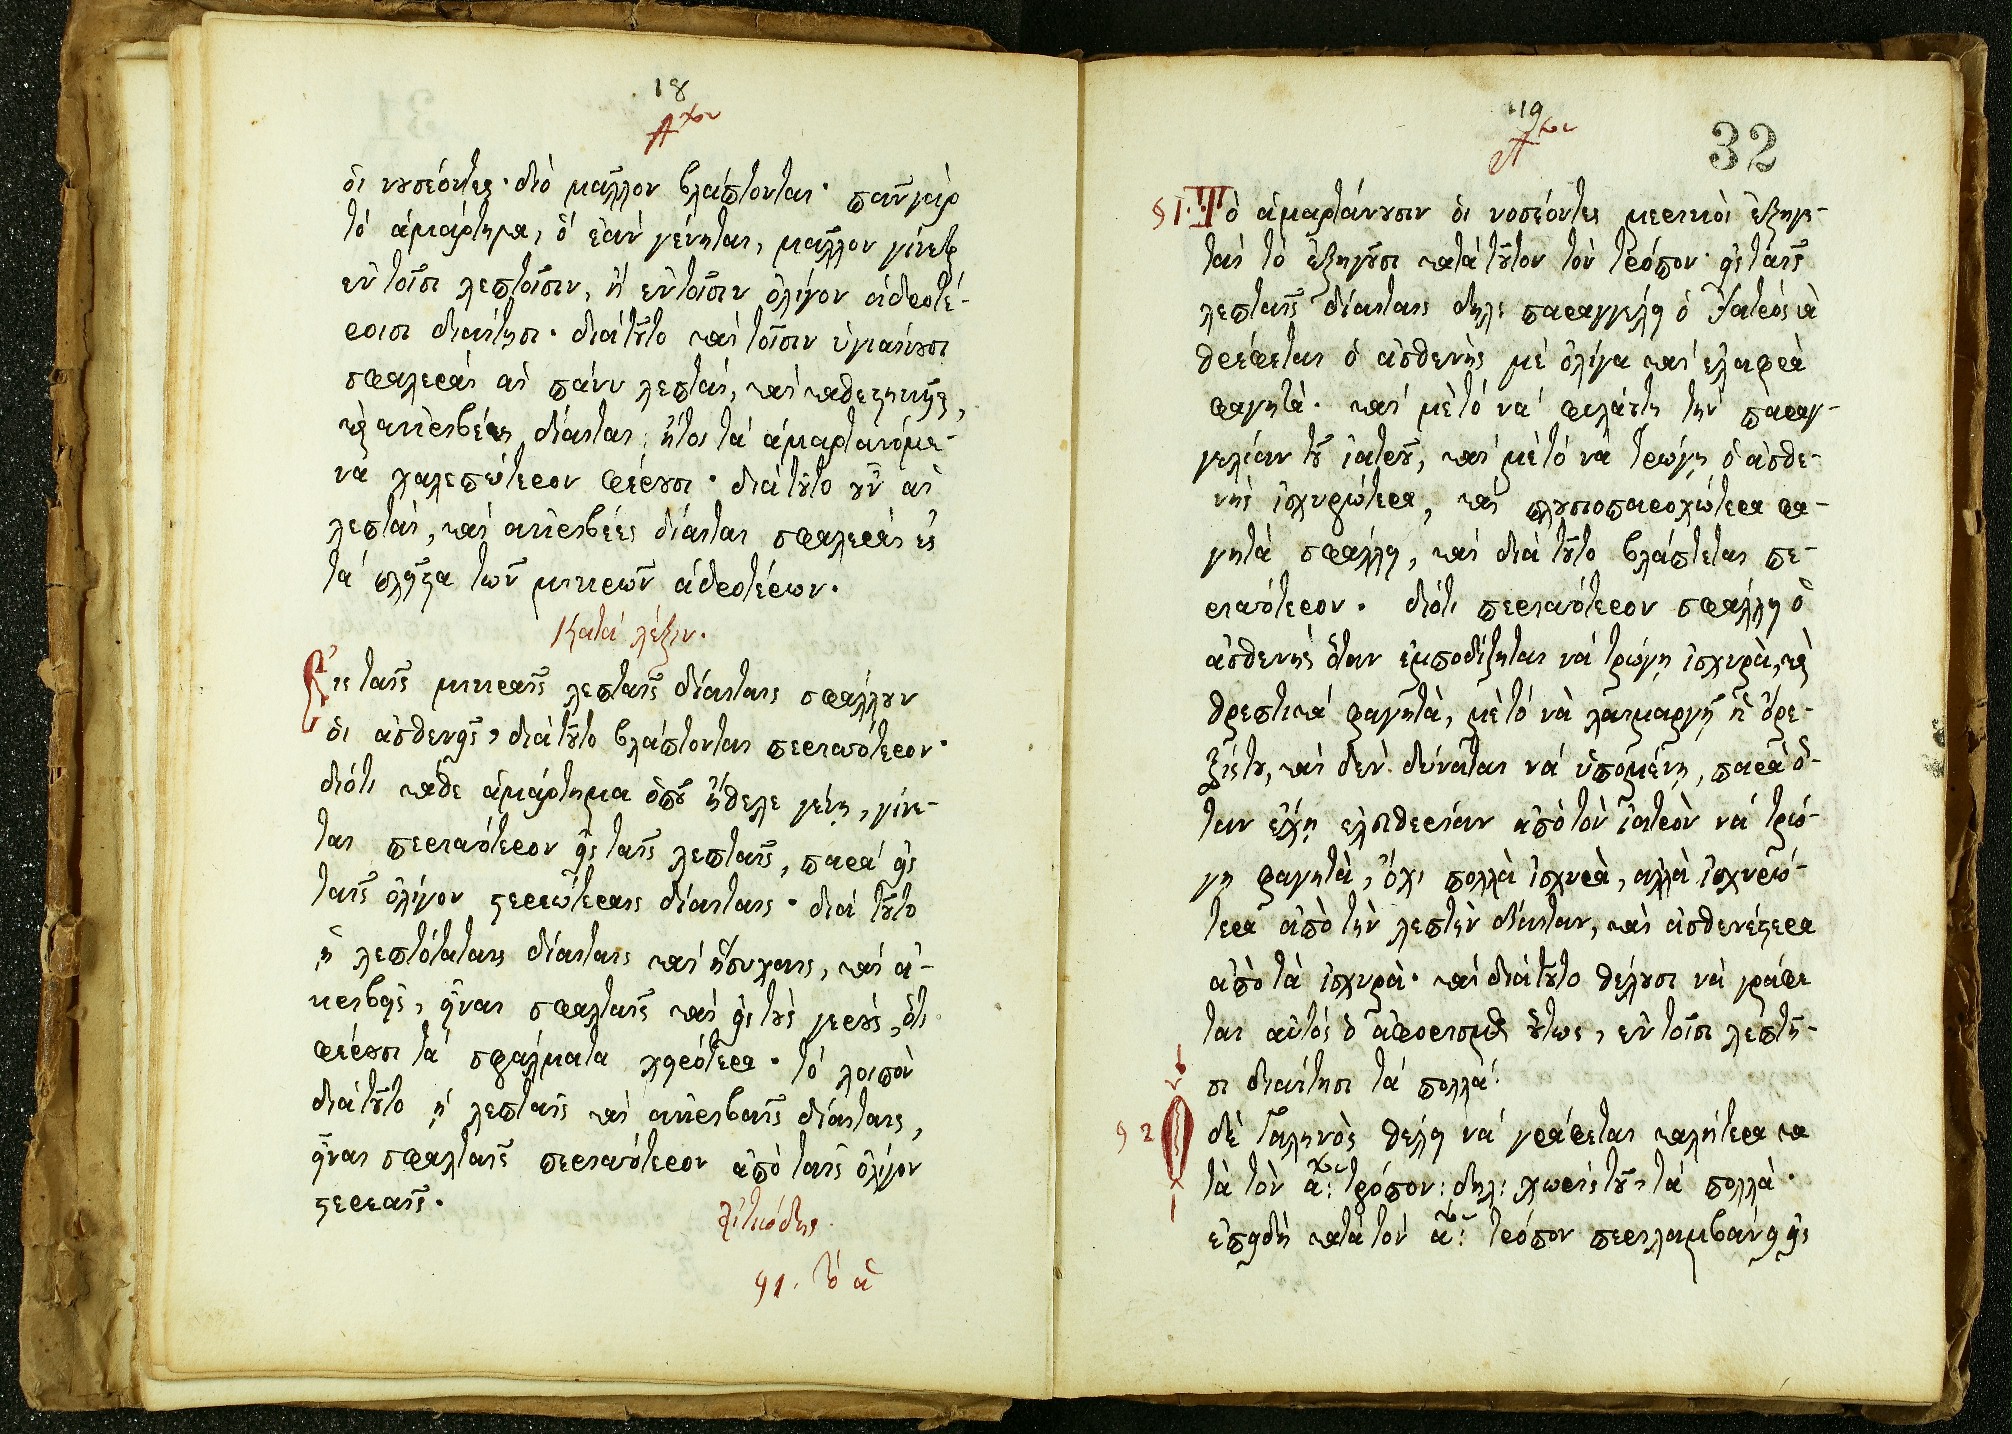 18
Α^χον
ὁι νοσέοντες· διὸ μᾶλλον βλάπτονται· πᾶν γὰρ
τὸ ἁμάρτημα, ὃ ἐὰν γένηται, μᾶλλον γίνεται
ἐν τοῖσι λεπτοῖσιν, ἢ ἐν τοῖσιν ὀλίγον ἁδροτέ-
ροισι διαίτησι· διὰ τοῦτο καὶ τοῖσιν ὑγιαίνουσι
σφαλεραὶ αἱ πάνυ λεπταὶ, καὶ καθεστηκυῖαι,
καὶ ἀκριβέες δίαιται· ὅτι τὰ ἁμαρτανόμε-
να χαλεπώτερον φέρουσι· διὰ τοῦτο οὖν αἱ
λεπταὶ, καὶ ἀκριβέες δίαιται σφαλεραὶ ἐς
τὰ πλεῖστα τῶν μικρῶν ἁδροτέρων.
Κατὰ λέξιν.
Εἰς ταῖς μικραῖς λεπταῖς δίαιταις σφάλλουν
ὁι ἀσθενεῖς, διὰ τοῦτο βλάπτονται περισσότερον·
διότι κάθε ἁμάρτημα ὁποῦ ἤθελε γένῃ, γίνε-
ται περισσότερον εἰς ταῖς λεπταῖς, παρὰ εἰς
ταῖς ὀλίγον στερεώτεραις δίαιταις· διὰ τοῦτο
ἡ λεπτόταταις δίαιταις καὶ ἥσυχαις, καὶ ἀ-
κριβεῖς, εἶναι σφαλταῖς καὶ εἰς τοὺς γεροὺς, ὅτι
φέρουσι τὰ σφάλματα χειρότερα· τὸ λοιπὸν
διὰ τοῦτο ἡ λεπταῖς καὶ ἀκριβαῖς δίαιταις,
εἶναι σφαλταῖς περισσότερον ἀπὸ ταῖς ὀλίγον
στερεαῖς.
§1. Τὸ ἁ
19
Α^χον
32
§1. Τὸ ἁμαρτάνουσιν ὁι νοσέοντες μερικοὶ ἐξηγη-
ταὶ τὸ ἐξηγοῦσι κατὰ τοῦτον τὸν τρόπον· εἰς ταῖς
λεπταῖς δίαιταις δηλ: παραγγέλει ὁ ἰατρὸς νὰ
θρέφεται ὁ ἀσθενὴς μὲ ὀλίγα καὶ ἐλαφρὰ
φαγητὰ· καὶ μὲ τὸ νὰ φυλάττῃ τὴν παραγ-
γελίαν τοῦ ἰατροῦ, καὶ μὲ τὸ νὰ τρώγῃ ὁ ἀσθε-
νὴς ἰσχυρώτερα, καὶ πλουσιοπαροχώτερα φα-
γητὰ σφάλλει, καὶ διὰ τοῦτο βλάπτεται πε-
ρισσότερον. διότι περισσότερον σφάλλει ὁ
ἀσθενὴς ὅταν ἐμποδίζηται νὰ τρώγῃ ἰσχυρὰ, καὶ
θρεπτικὰ φαγητὰ, μὲ τὸ νὰ λαιμαργῇ ἡ ὄρε-
ξίς του, καὶ δὲν δύναται νὰ ὑπομένῃ, παρὰ ὅ-
ταν ἔχῃ ἐλευθερίαν ἀπὸ τὸν ἰατρὸν νὰ τρώ-
γῃ φαγητὰ, ὄχι πολλὰ ἰσχυρὰ, ἀλλὰ ἰσχυρώ-
τερα ἀπὸ τὴν λεπτὴν δίαιταν, καὶ ἀσθενέστερα
ἀπὸ τὰ ἰσχυρὰ· καὶ διὰ τοῦτο θέλουσι νὰ γράφε
ται αὐτὸς ὁ ἀφορισμὸς οὕτως, ἐν τοῖσι λεπτῇ-
σι διαίτησι τὰ πολλά!
§2 Ὁ δὲ Γαληνὸς θέλει νὰ γράφεται καλήτερα κα
τὰ τὸν α^χον: τρόπον: δηλ: χωρὶς τοῦ, τὰ πολλὰ·
ἐπειδὴ κατὰ τὸν α^ον: τρόπον περιλαμβάνει εἰς